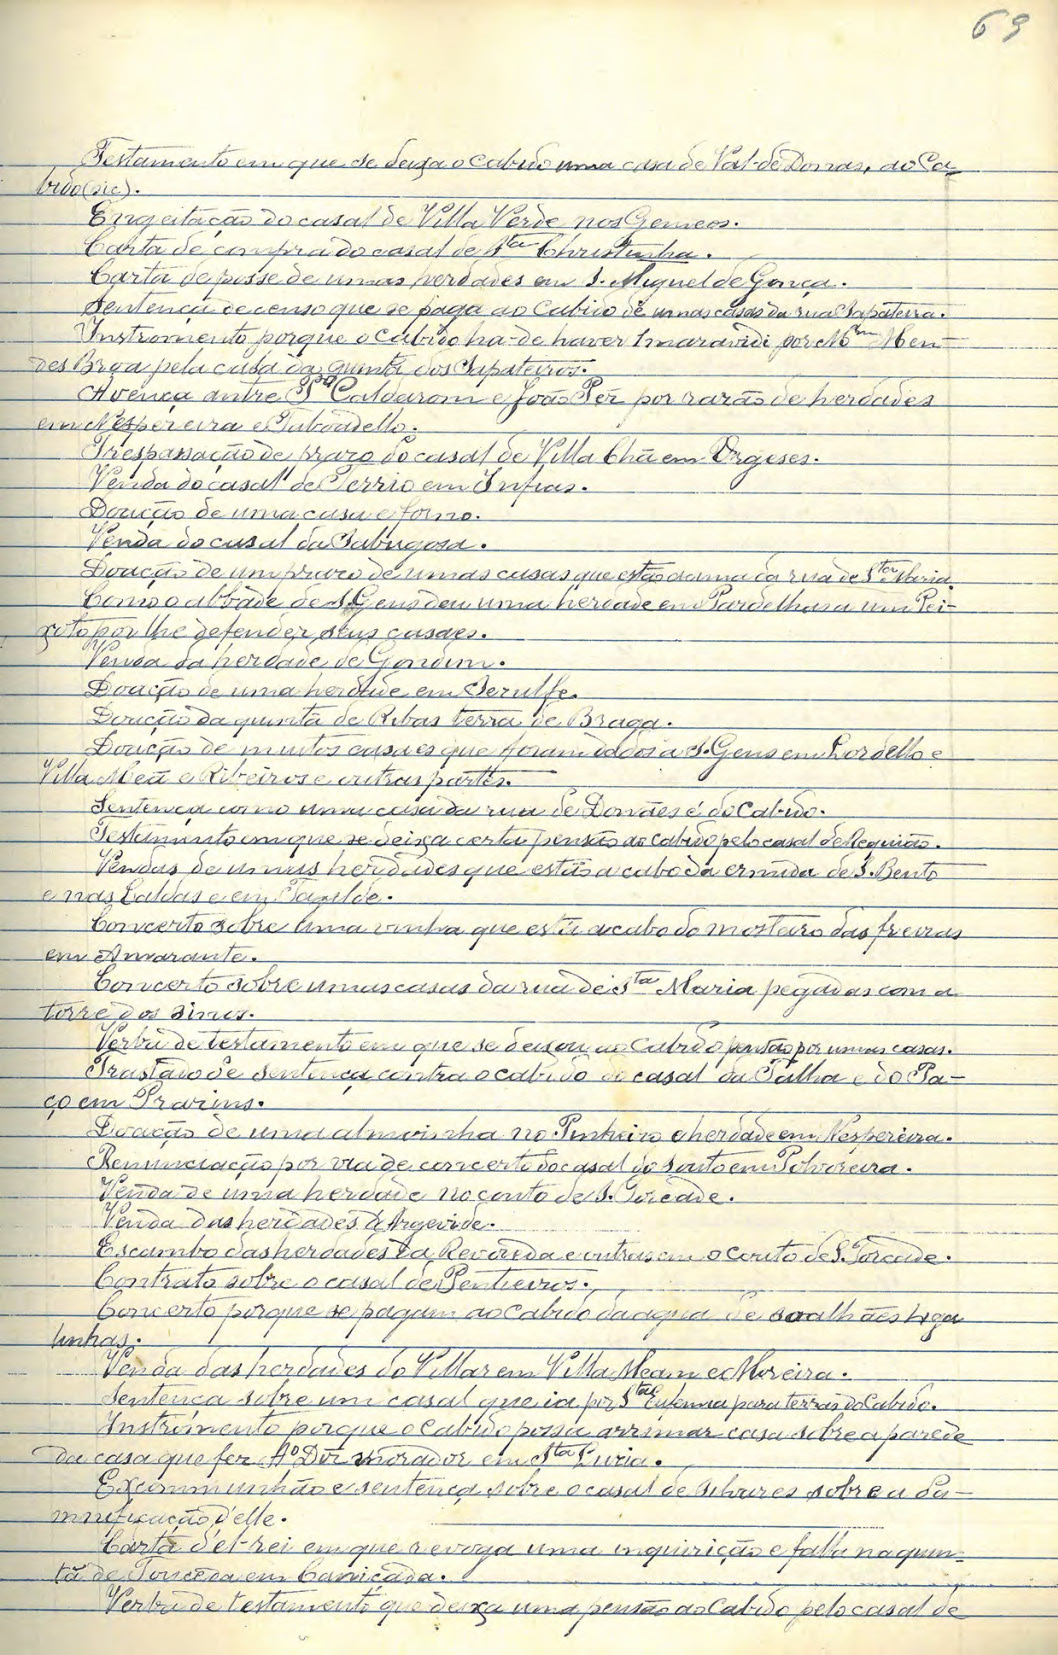 69
Testamento em que se deixa o cabido uma casa de Val-de Donas, ao Ca-
bido (sic).
Engeitação do casal de Villa Verde nos Gemeos.
Carta de compra do casal de Sta Christinha.
Carta de posse de umas herdades em S. Miguel de Gonça.
Sentença de censo que se paga ao Cabido de umas casas da rua Sapateira.
Instromento porque o Cabido ha-de haver 1 maravidi por Mem Men-
des Brga pela casa da quinta dos Sapateiros.
Avença antre Po Caldarom e João Pêz por razão de herdades
em Nespereira e Taboadello.
Trespassação de prazo do casal de Villa Chã em Orgeses.
Venda do casal de Cerrio em Infias.
Doação de uma casa e forno.
Venda do casal da Sabugosa.
Doação de um prazo de umas casas que estão acima da rua de Sta Maria.
Como o abbade de S. Gens deu uma herdade em Pardelhas a um Pei-
xoto por lhe defender seus casaes.
Venda da herdade de Gondim.
Doação de uma herdade em Serulfe.
Doação da quinta de Ribas terra de Braga.
Doação de muitos casaes que foram dados a S. Gens em Lordello e
Villa Meã e Ribeiros e outras partes.
Sentença como uma casa da rua de Donães é do Cabido.
Testamento em que se deixa certa pensão ao cabido pelo casal de Requião.
Vendas de umas herdades que estão a cabo da ermida de S. Bento
e nas Caldas e em Tagilde.
Concerto sobre uma vinha que está a cabo do mosteiro das freiras
em Amarante.
Concerto sobre umas casas da rua de Sta Maria pegadas com a
torre dos sinos.
Verba de testamento em que se deixou ao Cabido pensão por umas casas.
Trastão de sentença contra o cabido do casal da Palha e do Pa-
ço em Prazins.
Doação de uma almoinha no Pinheiro e herdade em Nespereira.
Renunciação por via de concerto do casal do Souto em Polvoreira.
Venda de uma herdade no couto de S. Torcade.
Venda das herdades d'Argevide.
Escambo das herdades da Revoreda e outras em o couto de S. Torcade.
Contrato sobre o casal de Penteeiros.
Concerto porque se pagam ao Cabido da egreja de Soalhães 4 ga
linhas.
Venda das herdades do Villar em Villa Meam e Moreira.
Sentença sobre um casal que ia por Sta Eufemia para terras do Cabido.
Instromento porque o Cabido possa arrimar casa sobre a parede
da casa que fez Ao Doiz morador em Sta Luzia.
Excommunhão e sentença sobre o casal de Silvares sobre a Da-
mnificação d'elle.
Carta d'el-rei em que revoga uma inquirição e falla na quin-
tã de Touceda em Caniçada.
Verba de testamento que deixa uma pensão ao Cabido pelo casal de